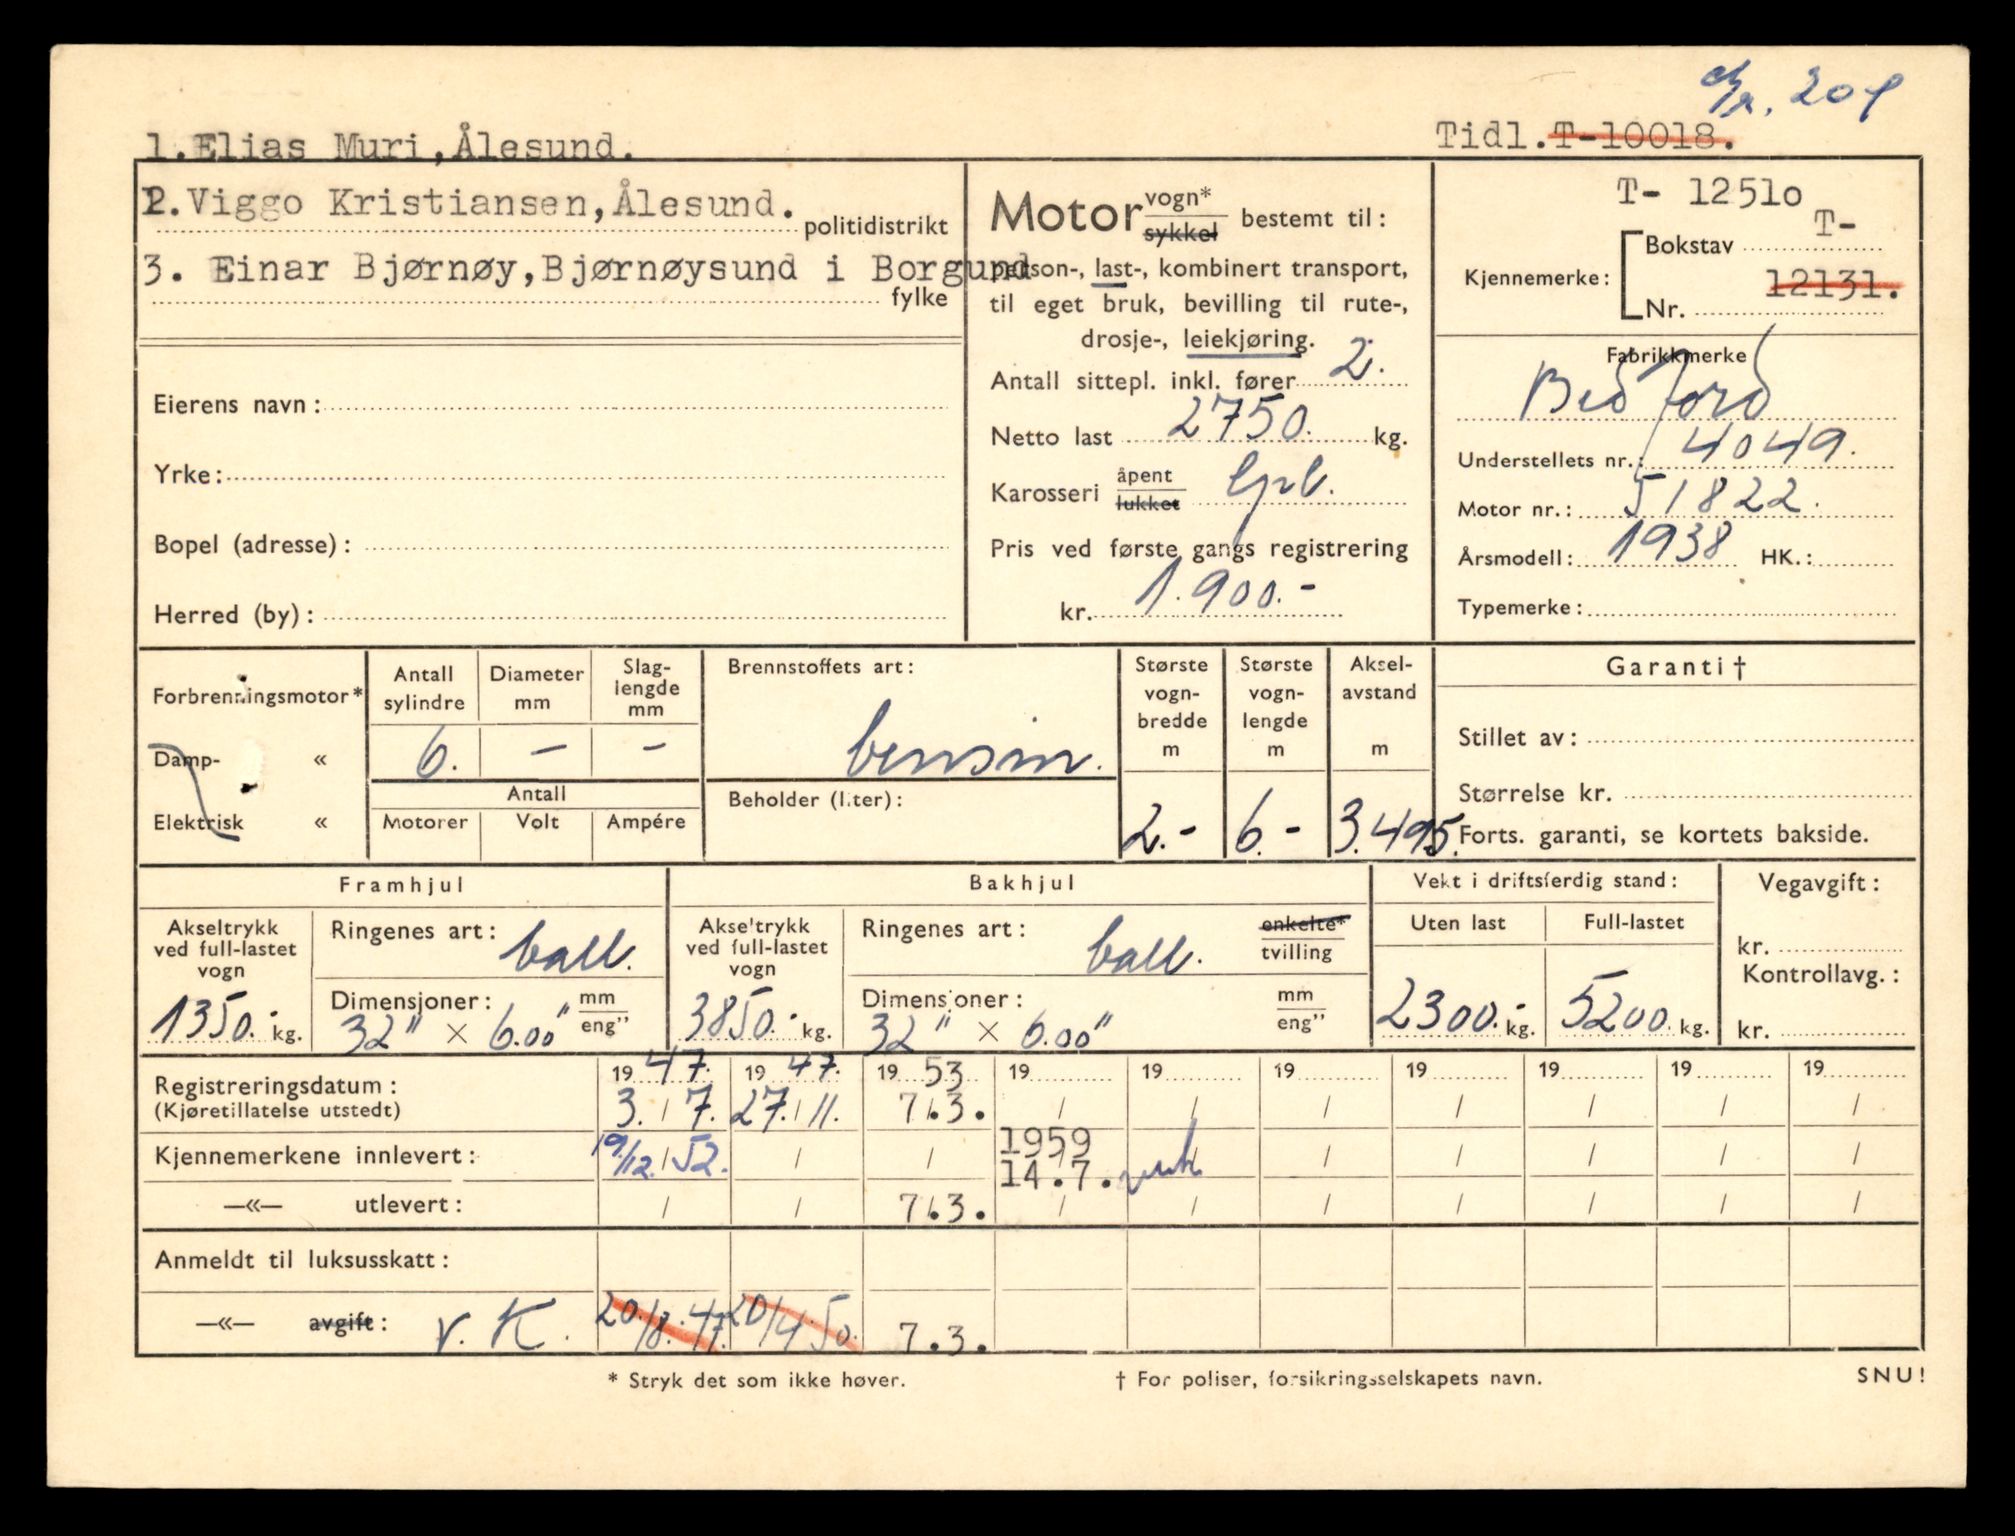 1.Elias Muri,Ålesund.
Tidl.T-10018.
2.Viggo Kristiansen,Ålesund. politidistrikt
3. Einar Bjørnøy,Bjørnøysund i Borgund
fylke
Eierens navn:
Yrke:
Bopel (adresse):
Herred (by):
Motor vogn* sykkel bestemt til:
person-, last-, kombinert transport,
til eget bruk, bevilling til rute-,
drosje-, leiekjøring.
Antall sittepl. inkl. fører 2.
Netto last 2750. kg.
Karosseri åpent lukket
Pris ved første gangs registrering
kr. 1.900.-
T- 12510
Kjennemerke: Bokstav T-
Nr. 12131.
Fabrikkmerke
Bedford
Understellets nr.: 4049.
Motor nr.: 51822.
Årsmodell: 1938 HK.:
Typemerke:
Forbrenningsmotor*
Damp- «
Elektrisk «
Antall sylindre
Diameter mm
Slag-lengde mm
6. — —
Antall
Motorer Volt Ampére
Brennstoffets art:
bensin.
Beholder (liter):
Største vogn-bredde m
2.-
Største vogn-lengde m
6.-
Aksel-avstand m
3.495.
Garanti †
Stillet av:
Størrelse kr.
Forts. garanti, se kortets bakside.
Framhjul
Akseltrykk ved full-lastet vogn
1350.- kg.
Ringenes art: ball.
Dimensjoner: mm eng"
32" × 6.00"
Bakhjul
Akseltrykk ved full-lastet vogn
3850.- kg.
Ringenes art: ball. enkelte* tvilling
Dimensjoner: mm eng"
32" × 6.00"
Vekt i driftsferdig stand:
Uten last Full-lastet
2300.- kg. 5200. kg.
Vegavgift:
kr.
Kontrollavg.:
kr.
Registreringsdatum: 1947. 1947. 1953 19 19 19 19 19 19 19
(Kjøretillatelse utstedt) 3./7. 27./11. 7.3. / / / / / / /
Kjennemerkene innlevert: 19/12. 52. / / 1959 14.7. / / / / / /
—«— utlevert: / / 7.3. / / / / / / /
Anmeldt til luksusskatt:
—«— avgift: V. K. 20/8.47. 20/4 50. 7.3.
* Stryk det som ikke høver.
† For poliser, forsikringsselskapets navn.
SNU!